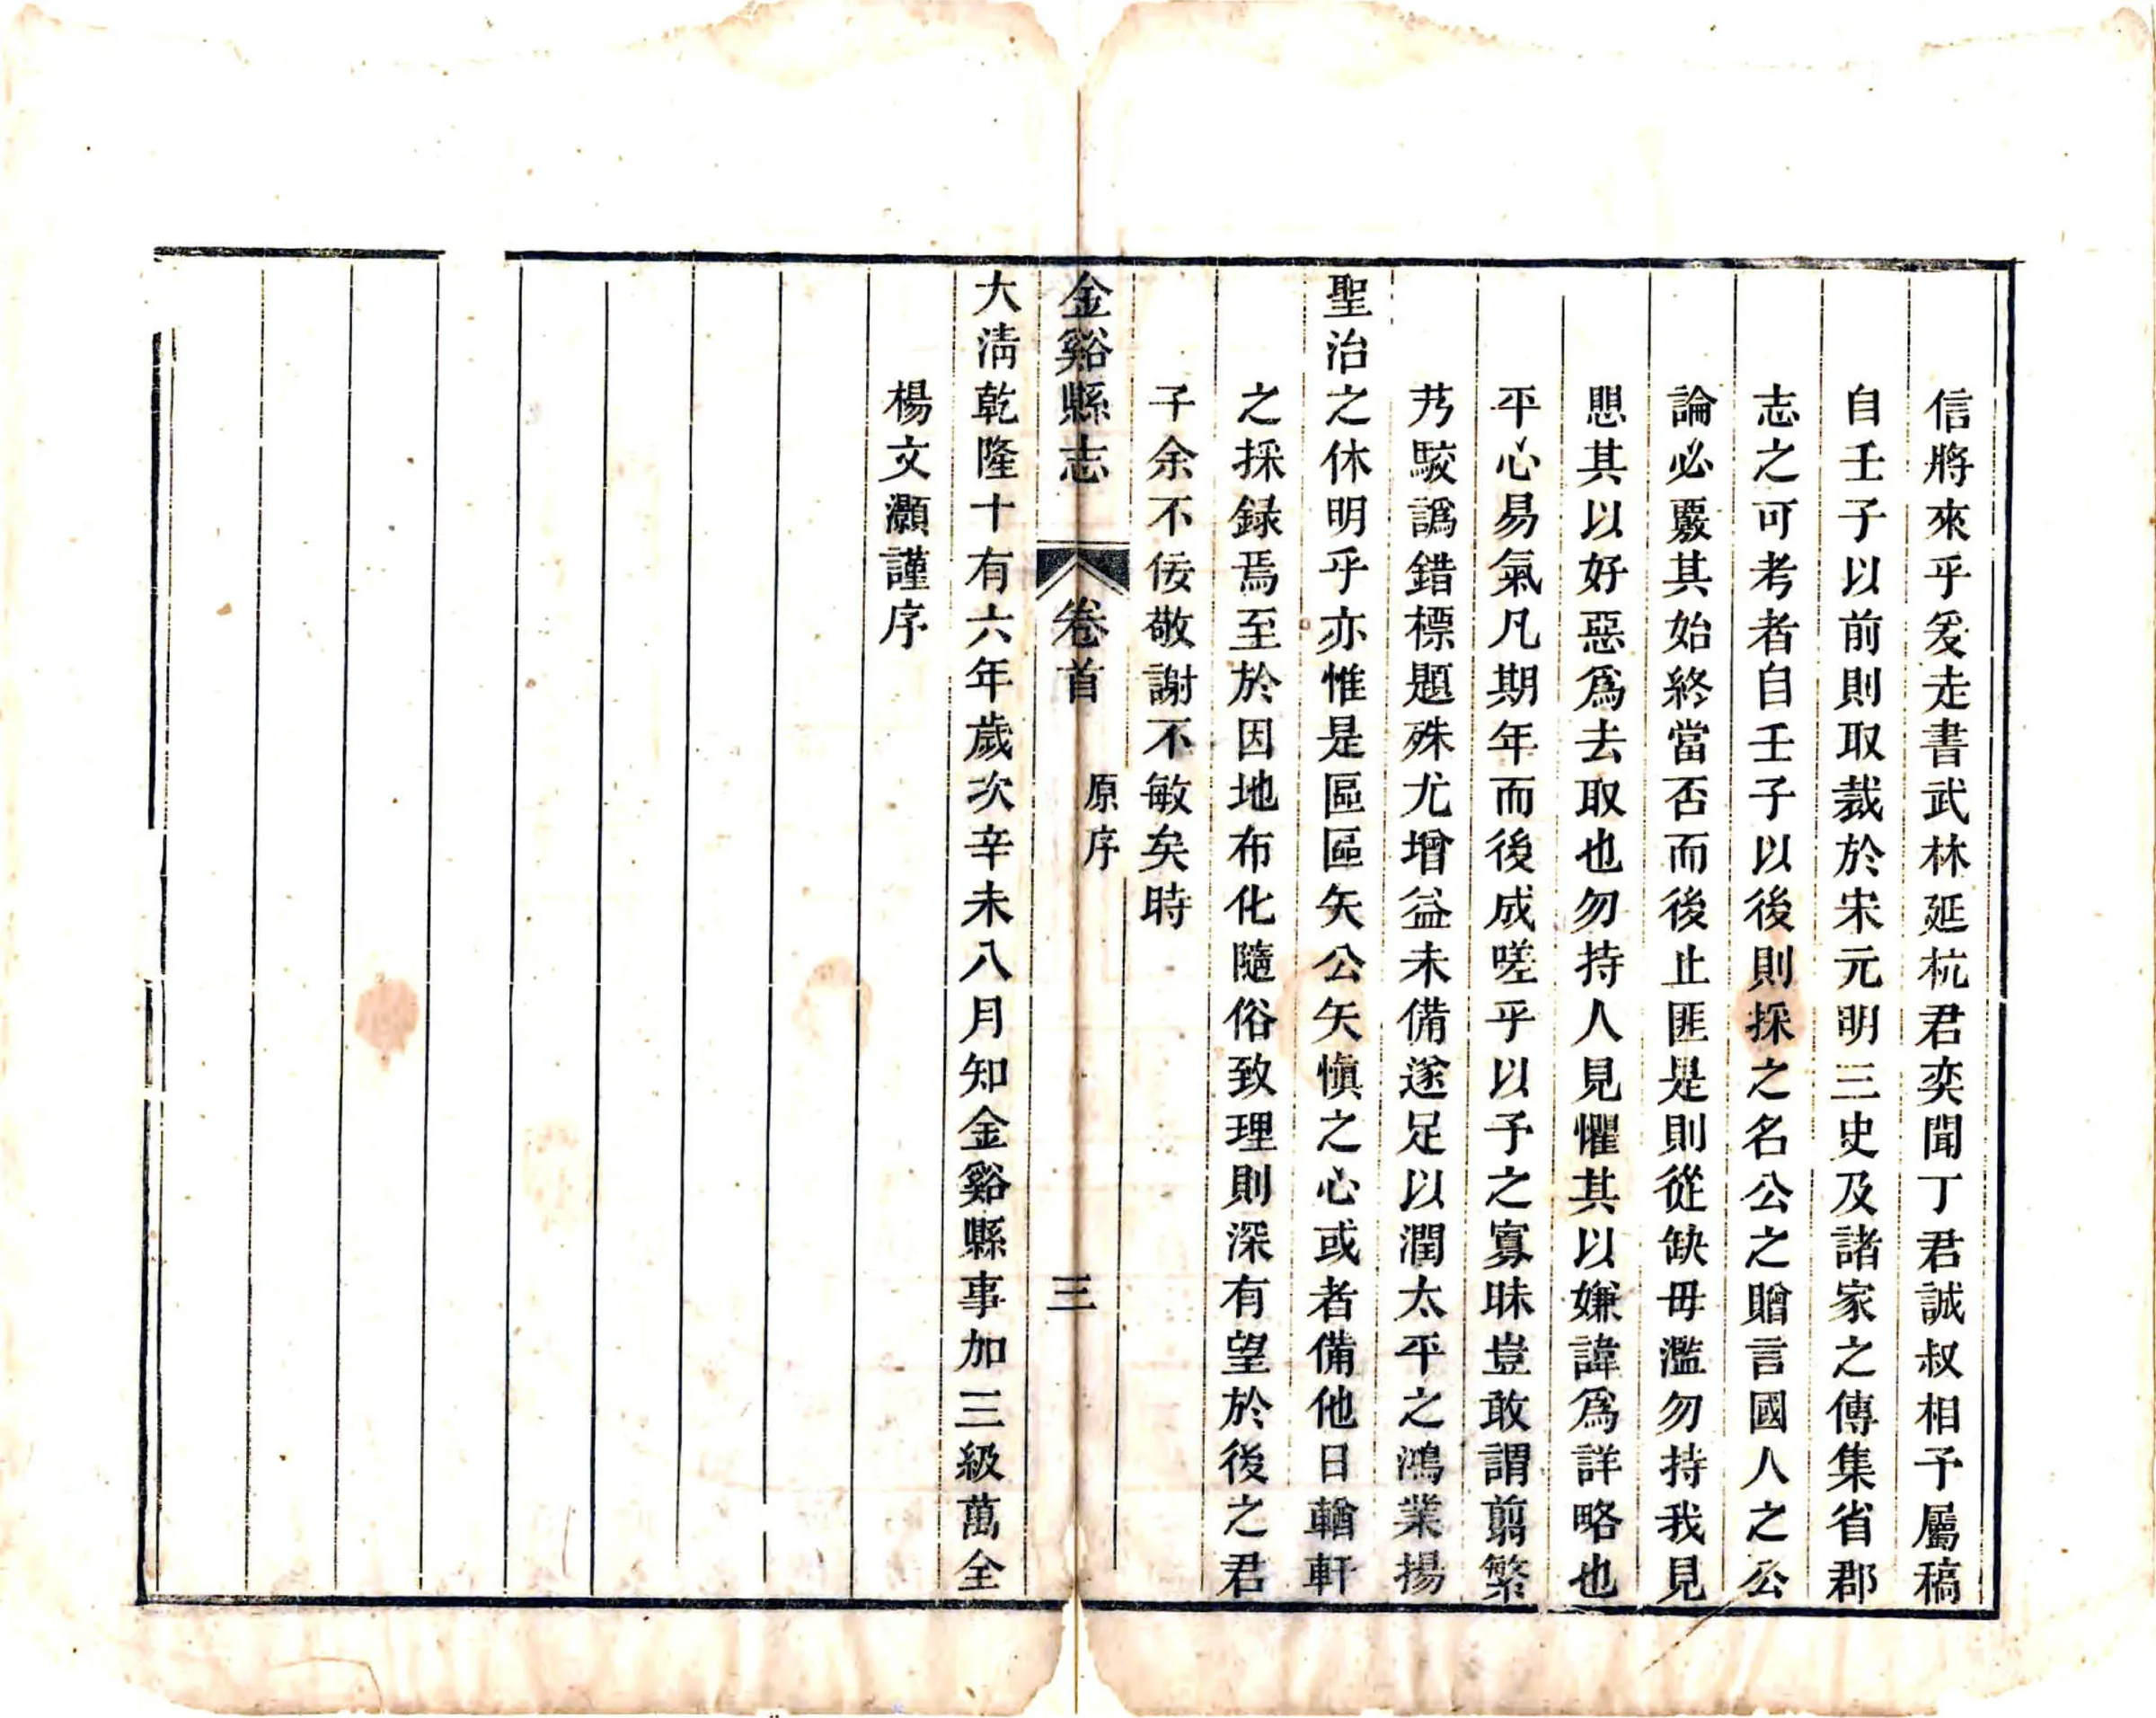 信將來乎爰走書武林延杭君奕聞丁君誠叔相予屬稿
自壬子以前則取裁於宋元明三史及諸家之傳集省郡
志之可考者自壬子以後則採之名公之贈言國人之公
論必覈其始終當否而後止匪是則從缺毋濫勿持我見
愳其以好惡為去取也勿持人見懼其以嫌諱為詳略也
平心易氣凡期年而後成嗟乎以予之寡昧豈敢謂翦繁
艿駮譌錯標題殊尤增益未備遂足以潤太平之鴻業揚
聖治之休明乎亦惟是區區矢公矢愼之心或者備他日輶軒
之採録焉至於因地布化隨俗致理則深有望於後之君
子余不佞敬謝不敏矣時
金谿縣志
卷首
原序
三
大淸乾隆十有六年歲次辛未八月知金谿縣事加三級萬全
楊文灝謹序